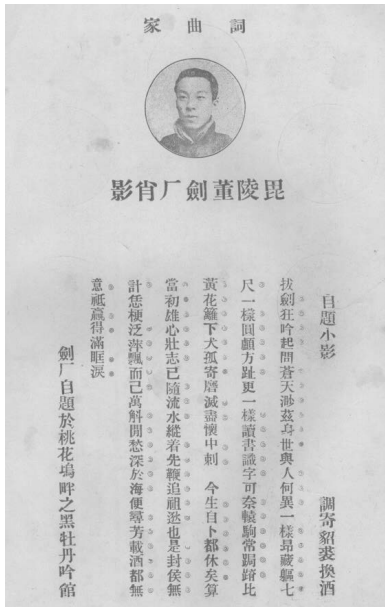 詞曲家
毘陵董劍厂肖影
自題小影　調寄貂裘換酒
拔劍狂吟起問蒼天渺茲身世與人何異一樣昂藏軀七
尺一樣圓顱方趾更一樣讀書識字可奈轅駒常跼蹐比
黃花籬下尤孤寄磨滅盡懷中刺　今生自卜都休矣算
當初雄心壯志已隨流水縱着先鞭追祖逖也是封侯無
計恁梗泛萍飄而已萬斛閒愁深於海便尋芳載酒都無
意祗贏得滿眶淚
劍厂自題於桃花塢畔之黑牡丹吟館